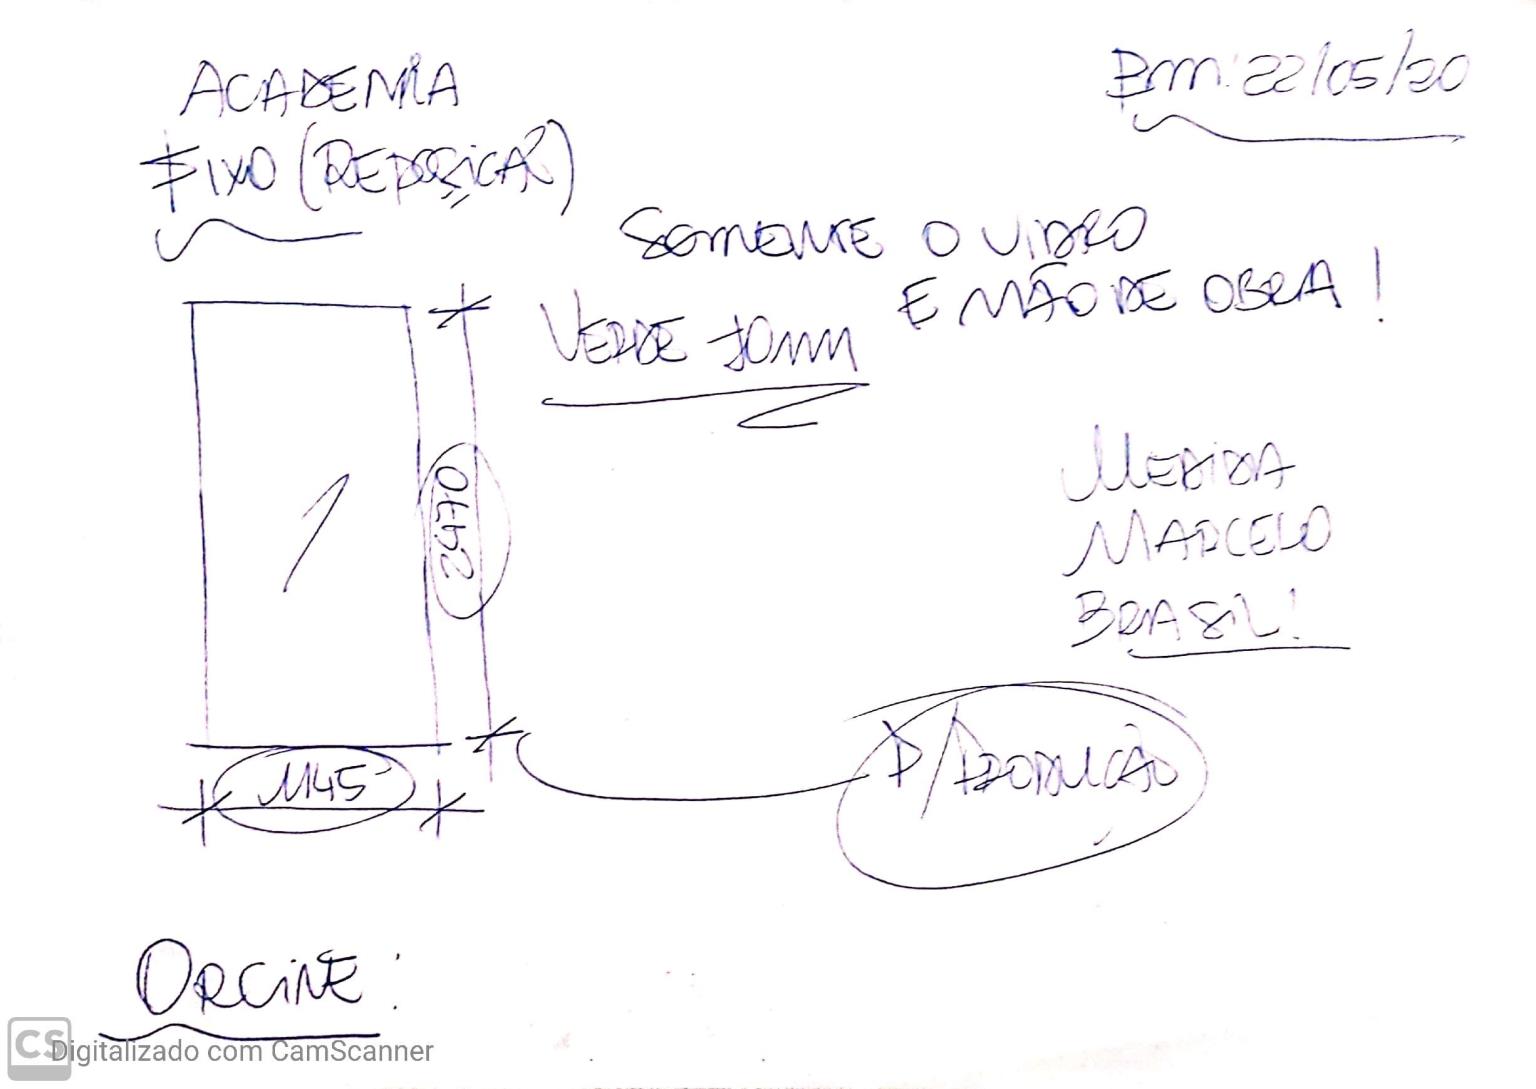 ACADEMIA
FIXO (REPOSIÇÃO)
Bm: 22/05/20
SOMENTE O VIDRO
E MÃO DE OBRA!
VERDE 10mm
1
2470
1145
MEDIDA
MARCELO
BRASIL!
P/PRODUÇÃO
ORCINE:
CS Digitalizado com CamScanner